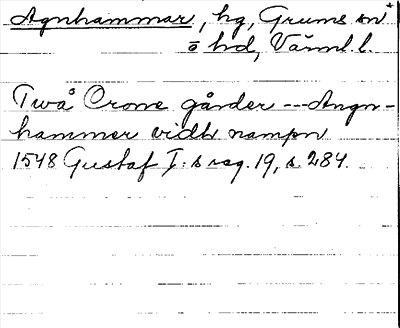 Agnhammar, hg, Grums sn
o hd, Värml. l.
Twå Crone gårder --- Angn-
hammer vidh nampn
1548 Gustaf I:s reg. 19, s. 284.